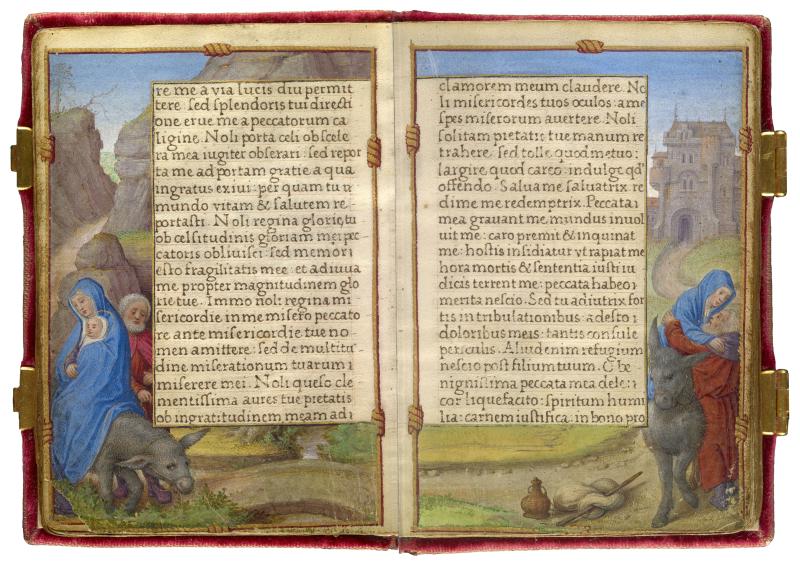 re me a via lucis diu permit
tere sed splendoris tui directi
one erue me a peccatorum ca
ligine. Noli porta celi ob scele
ra mea iugiter obserari: sed repor
ta me ad portam gratie a qua
ingratus exiui: per quam tu
mundo vitam & salutem re
portasti. Noli regina glorie tu
ob celsitudinis gloriam mei pec
catoris obliuisci sed memori
esto fragilitatis mee: et adiuua
me propter magnitudinem glo
rie tue. Immo noli regina mi
sericordie in me misero peccato
re ante misericordie tue no
men amittere: sed de multitu
dine miserationum tuarum
miserere mei. Noli queso cle
mentissima aures tue pietatis
ob ingratitudinem meam ad
clamorem meum claudere. No
li misericordes tuos oculos: a me
spes miserorum auertere. Noli
solitam pietatis tue manum re
trahere. sed tolle quod metuo:
largire quod careo: indulge qd
offendo. Salua me saluatrix. re
dime me redemptrix. Peccata
mea grauant me: mundus inuol
uit me: caro premit & inquinat
me: hostis insidiatur vt rapiat me
hora mortis & sententia iusti iu
dicis terrent me: peccata habeo:
merita nescio. Sed tu adiutrix for
tis in tribulationibus: adesto
doloribus meis: tantis consule
periculis. Aliud enim refugium
nescio post filium tuum. O be
nignissima peccata mea dele:
cor liquefacito: spiritum humi
lia: carnem iustifica: in bono pro